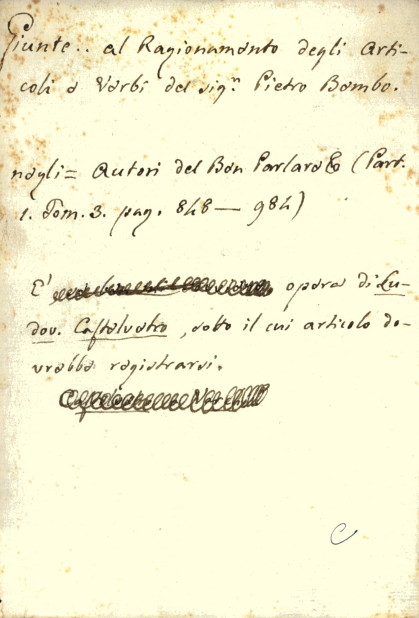 Giunte.. al Ragionamento degli Arti-
coli e Verbi del sig.r Pietro Bembo.
negli = Autori del Ben Parlare & (Part.
1. Tom. 3. pag. 848 — 984)
E' opera di Lu-
dov. Castelvetro, sotto il cui articolo do-
vrebbe registrarsi.
C